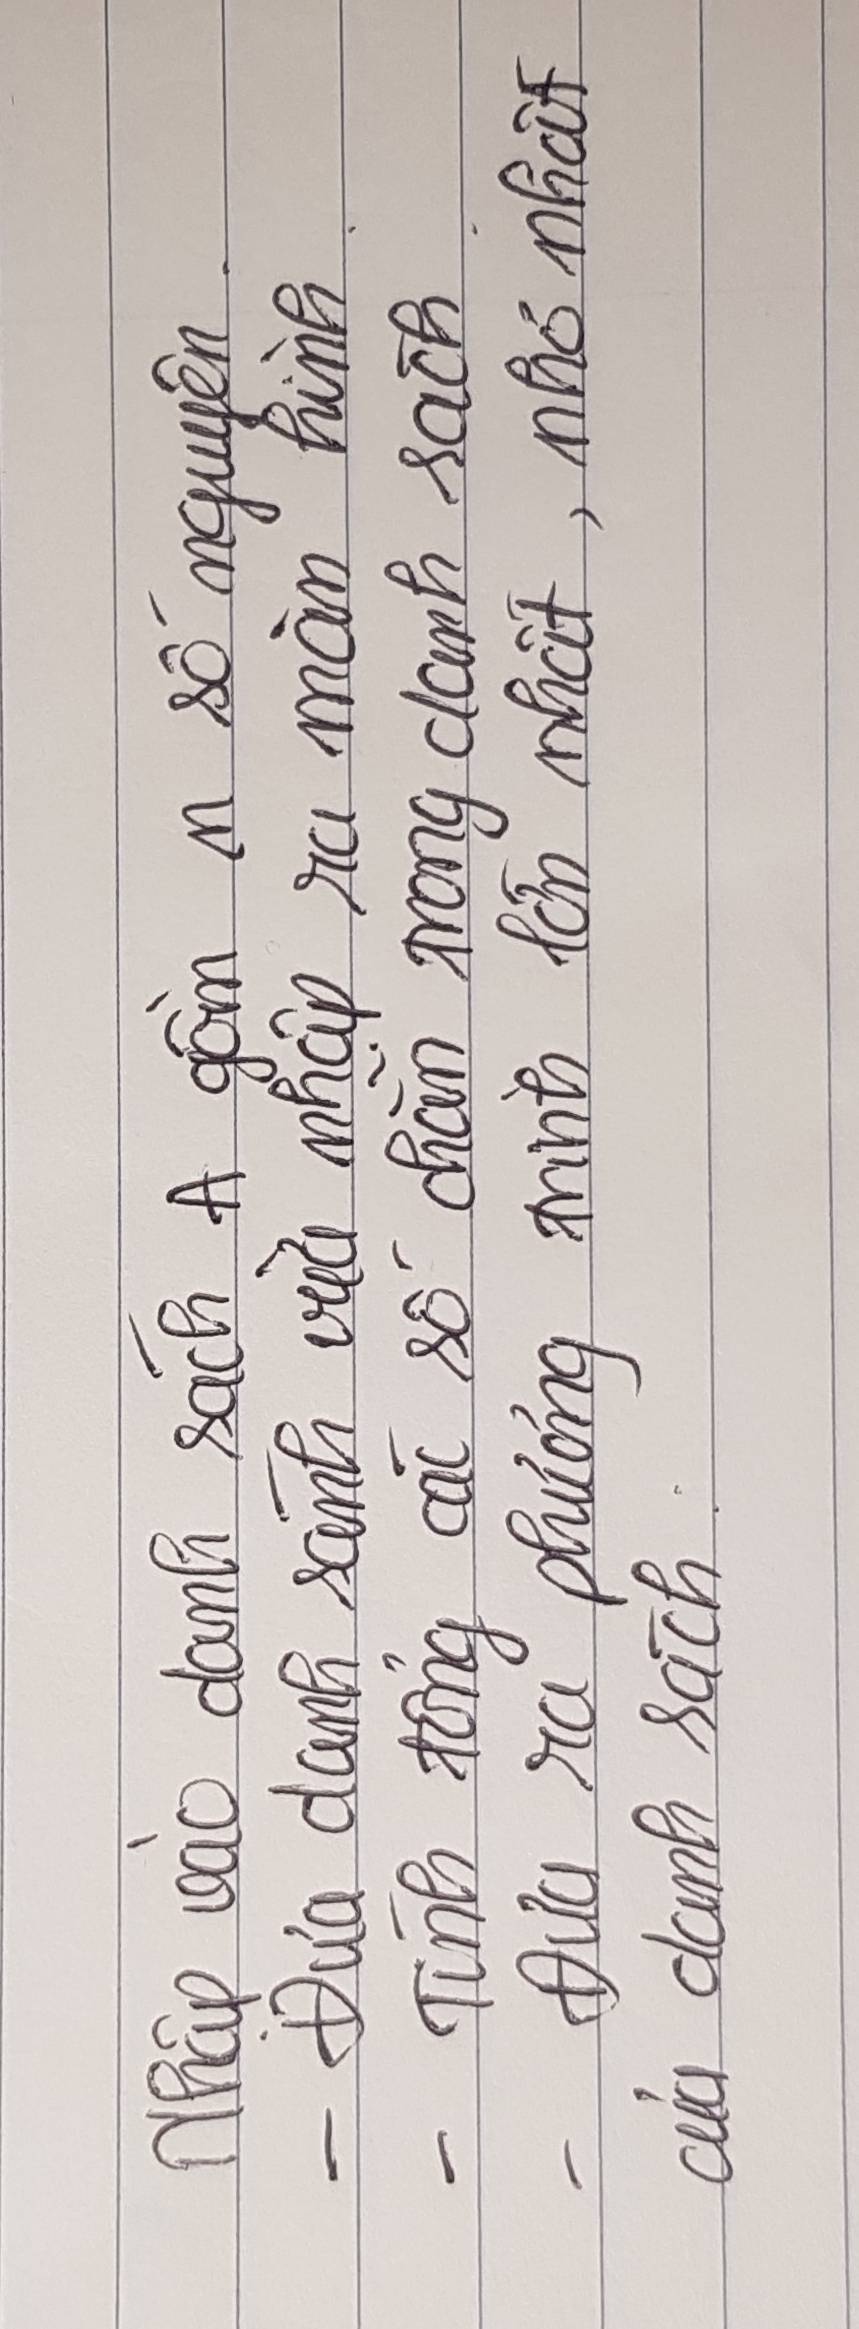 Nhập vào danh sách A gồm n số nguyên.
- Đưa danh sánh vừa nhập ra màn hình.
- Tính tổng các số chẵn trong danh sách.
- Đưa ra phương trình lớn nhất, nhỏ nhất
của danh sách.